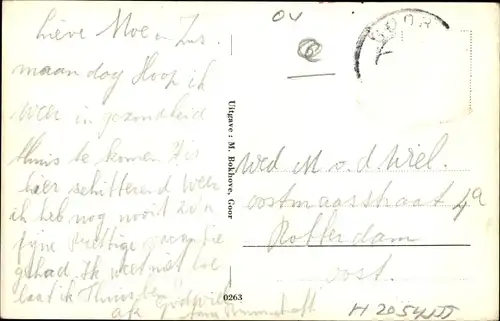 Lieve Moe en Zus.
maandag Hoop ik
weer in gezondheid
thuis te komen. 't is
hier schitterend weer
ik heb nog nooit zo'n
fijne prettige vacantie
gehad. Ik weet niet hoe
laat ik thuis
OV
6
GOOR
Uitgave: M. Bokhove, Goor
0263
Wed M v.d Wiel.
oostmaasstraat 4a
Rotterdam
oost.
H 2054